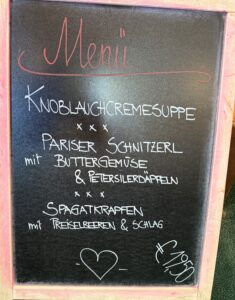 Menü
KNOBLAUCHCREMESUPPE
x x x
PARISER SCHNITZERL
mit BUTTERGEMÜSE
& PETERSILERDÄPFELN
x x x
SPAGATKRAPFEN
mit PREISELBEEREN & SCHLAG